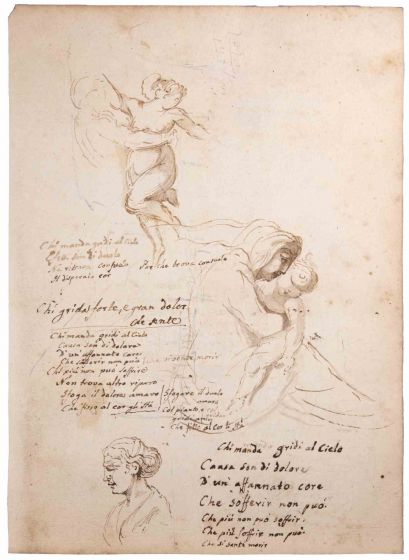 Chi manda gridi al Cielo
son di duolo
Ne ritrova consuolo Perche trova consuolo
Al disperato cor
Chi grida forte, e gran dolor
che sente
Chi manda gridi al Cielo
Causa son di dolore
D'un affannato core
Che sofferir non può
morir
Chi più non può soffrire
Non trova altro riparo
Sfoga il dolore amaro Sfogare il duolo
amaro
Che al cor gli stà Col pianto
Che al cor stà
Chi manda gridi al Cielo
Causa son di dolore
D'un affannato core
Che sofferir non può
Che più non può soffrir
Che più non può soffrir
Che di morir